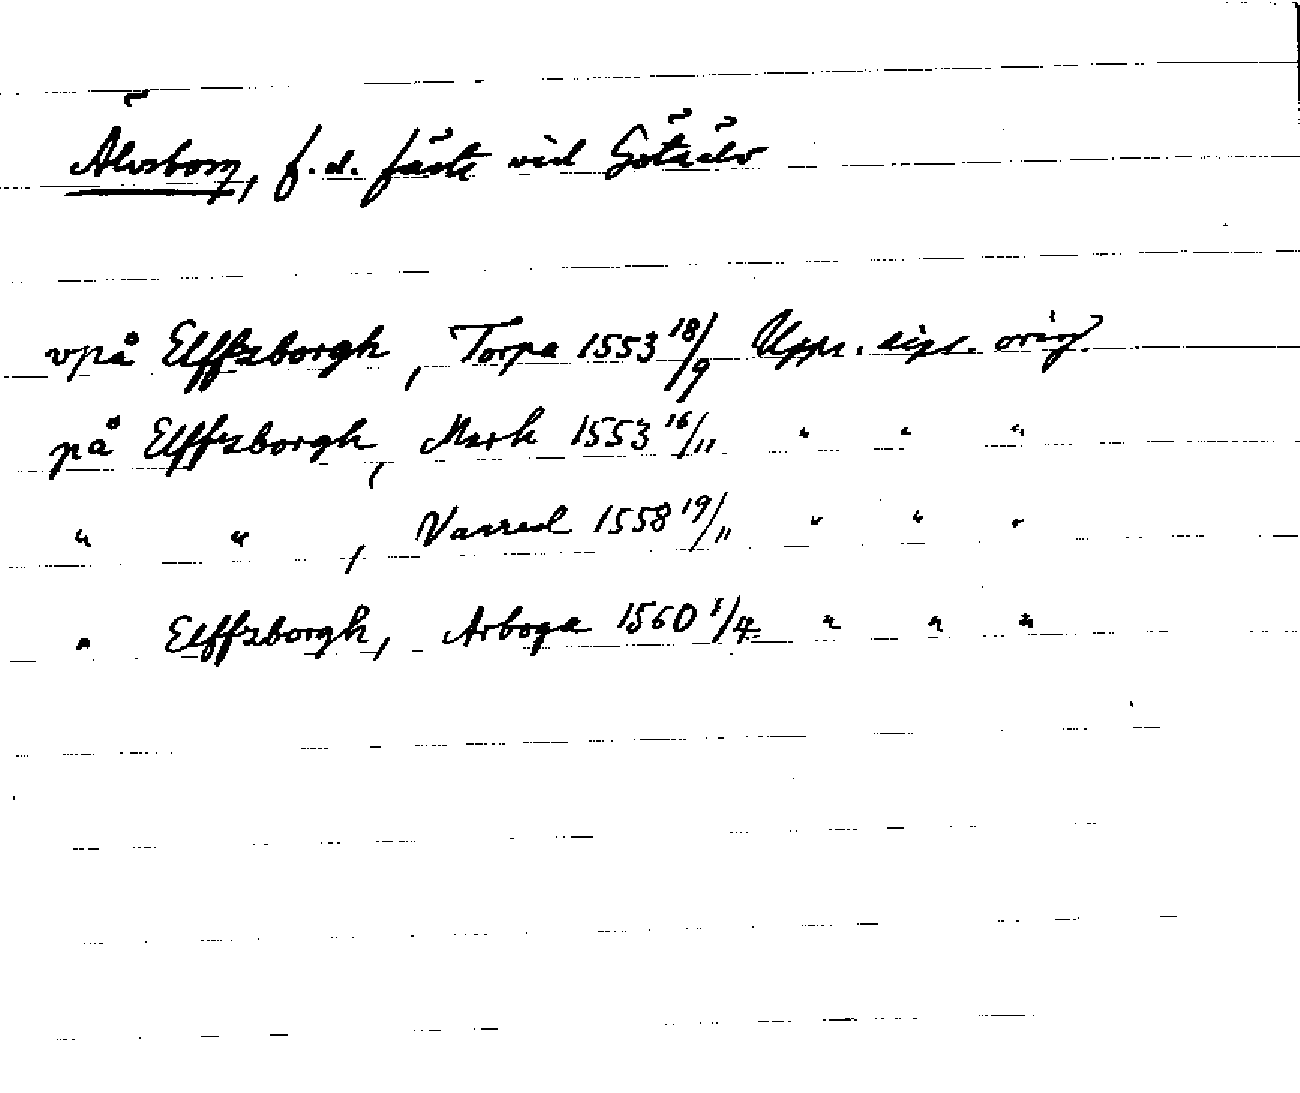 Älvsborg, f.d. fäste vid Göta älv
vpå Elffzborgh, Torpa 1553 18/9 Upps. dipl. orig.
på Elffzborgh, Mark 1553 16/11 " " "
" " , Vasred 1558 19/11 " " "
" Elffzborgh, Arboga 1560 1/4 " " "